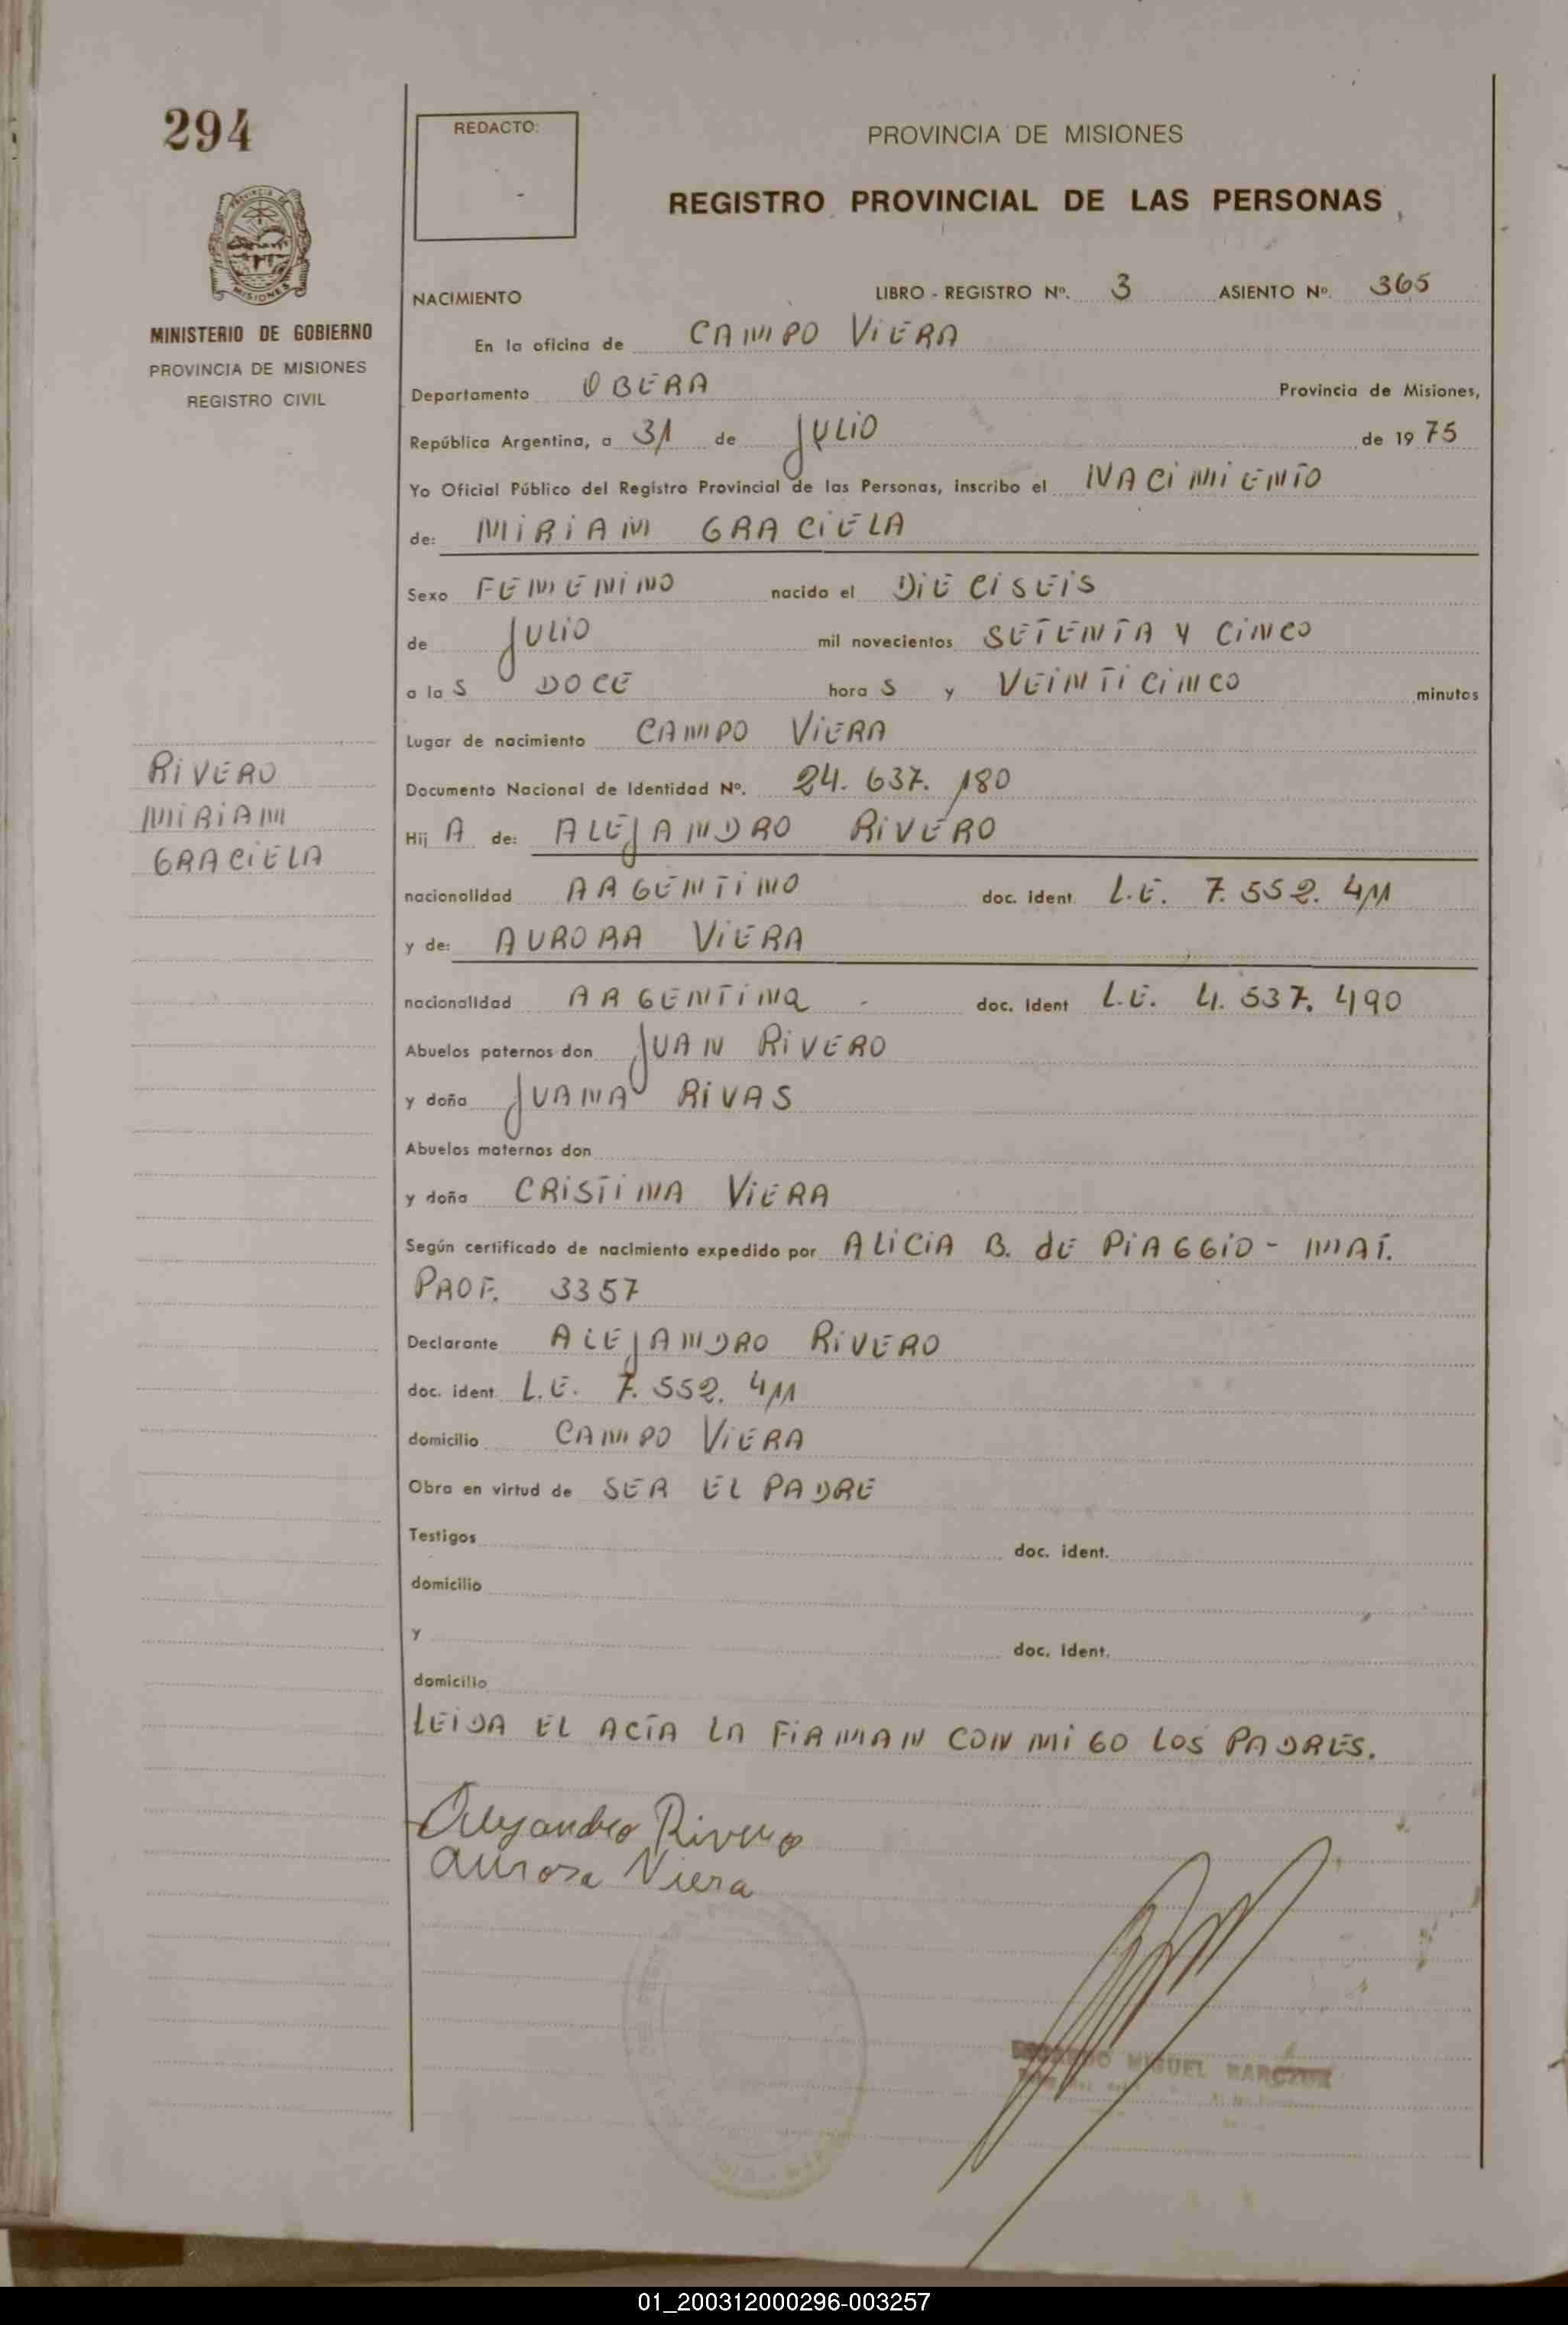 294
REDACTO:
PROVINCIA DE MISIONES
REGISTRO PROVINCIAL DE LAS PERSONAS
MISIONES
MINISTERIO DE GOBIERNO
PROVINCIA DE MISIONES
REGISTRO CIVIL
NACIMIENTO LIBRO - REGISTRO Nº. 3 ASIENTO Nº. 365
En la oficina de CAMPO VIERA
Departamento OBERA Provincia de Misiones,
República Argentina, a 31 de JULIO de 1975
Yo Oficial Público del Registro Provincial de las Personas, inscribo el NACIMIENTO
de: MIRIAM GRACIELA
Sexo FEMENINO nacido el DIECISEIS
de JULIO mil novecientos SETENTA Y CINCO
a las DOCE horas y VEINTICINCO minutos
Lugar de nacimiento CAMPO VIERA
Documento Nacional de Identidad Nº. 24.637.180
RIVERO
MIRIAM
GRACIELA
Hij A de: ALEJANDRO RIVERO
nacionalidad ARGENTINO doc. ident. L.E. 7.552.411
y de: AURORA VIERA
nacionalidad ARGENTINA - doc. ident L.E. 4.537.490
Abuelos paternos don JUAN RIVERO
y doña JUANA RIVAS
Abuelos maternos don
y doña CRISTINA VIERA
Según certificado de nacimiento expedido por ALICIA B. dE PIAGGIO - MAT.
PROF. 3357
Declarante ALEJANDRO RIVERO
doc. ident. L.E. 7.552.411
domicilio CAMPO VIERA
Obra en virtud de SER EL PADRE
Testigos doc. ident.
domicilio
y doc. ident.
domicilio
LEIDA EL ACTA LA FIRMAN CONMIGO LOS PADRES.
Alejandro Rivero
Aurora Viera
MIGUEL
01_200312000296-003257